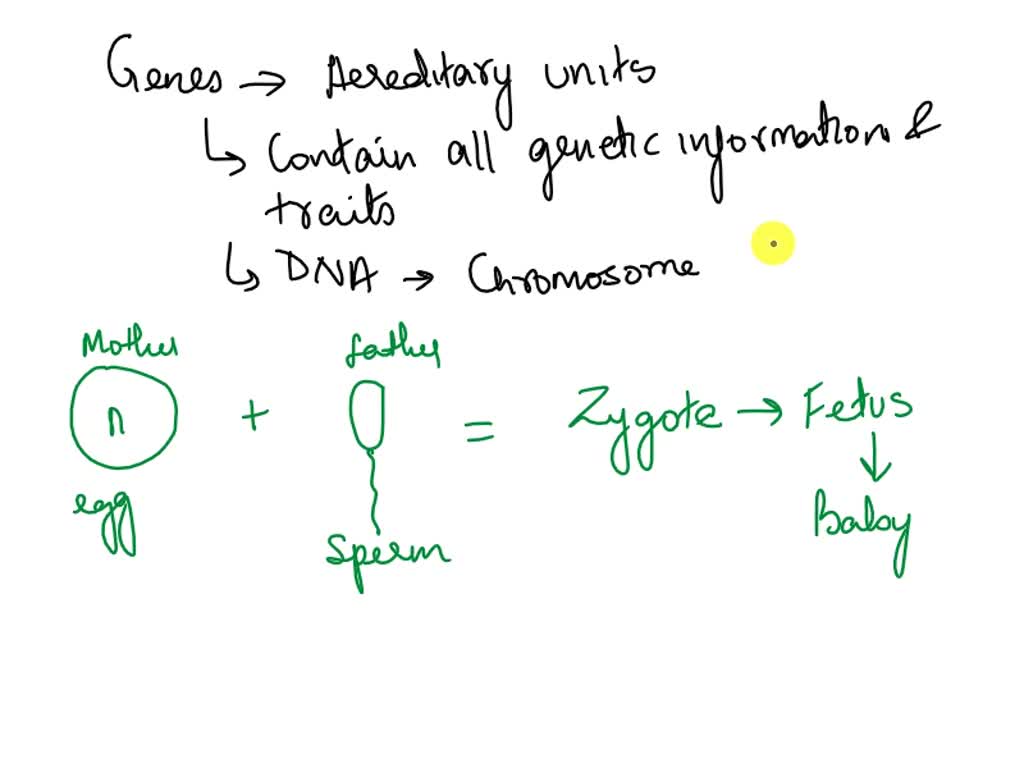 Genes → Hereditary units
↳ Contain all genetic information &
traits
↳ DNA → Chromosome
Mother father
n + = Zygote → Fetus
↓
egg Sperm Baby